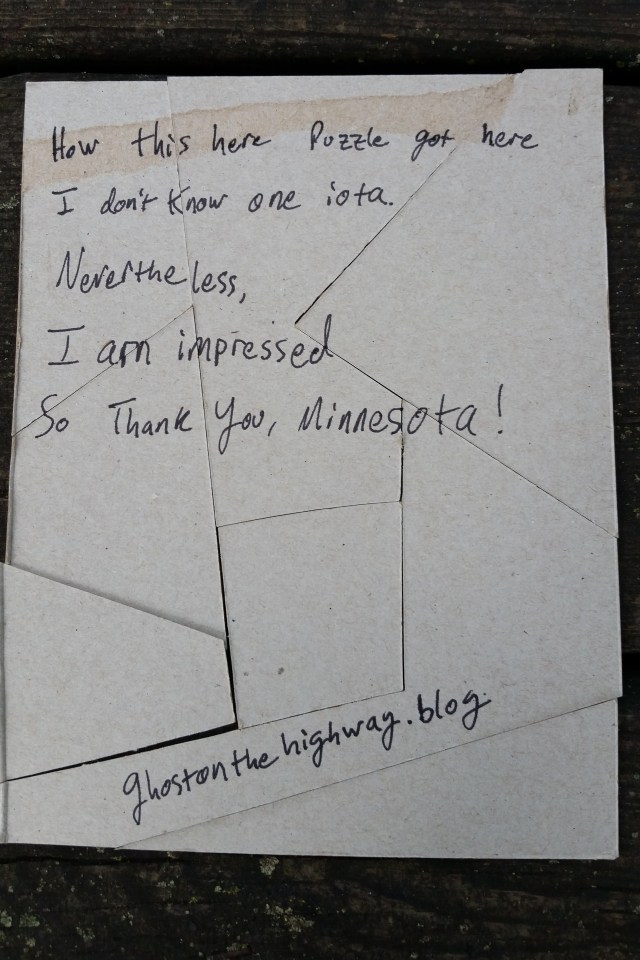 How this here Puzzle got here
I don't know one iota.
Nevertheless,
I am impressed
So Thank You, Minnesota!
ghostonthehighway.blog